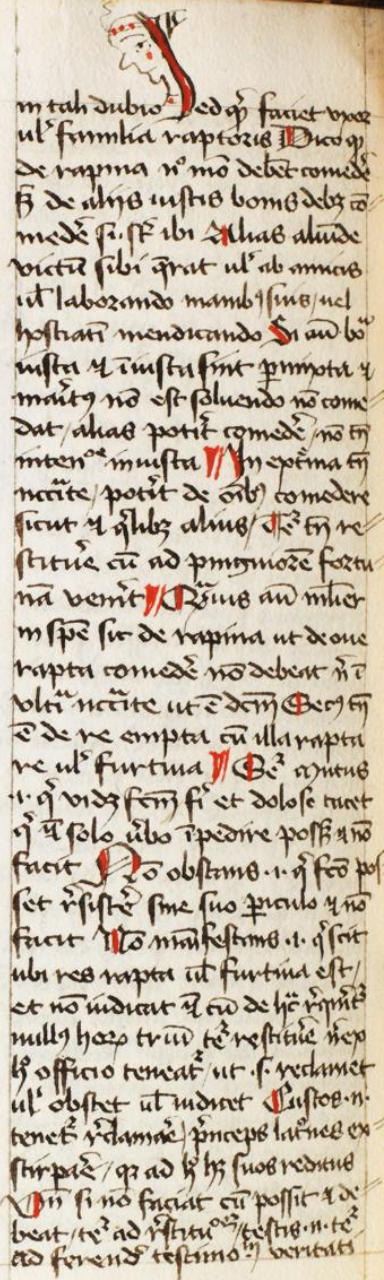 in tali dubio Sed qͥd faciet vxor
ul' familia raptoris Dico qͥ
de rapina nͦ mͦ debēt comedē
sꝫ de aliis iustis bonis debꝫ cō-
medē si. sͭ ibi Alias aliūde
victū sibi q̄rat ul' ab amicis
ul' laborando manibꝰ suis, uel
hostiatī mendicando Si aū boͣ
iusta ⁊ īiusta sint ꝑmixta ⁊
marītꝰ nō est soluendo nō come-
dat, alias potīt comedē, nō tn̄
intenͦⁿᵉ iniusta In extͤma tn̄
nccāte, potīt de oībꝰ comedere
sicut ⁊ qͥlibꝫ alius, Tꝫ tn̄ re-
stituē cū ad pinguiorē fortu-
nā venīt Quis aū mlīer
in spē sic de rapina ut de oue
rapta comedē nō debeat nͥ ī
vltīa nccāte ut ē dcm̄ Secꝰ tn̄
ē de re empta cū illa rapta
re ul' furtiua Tꝫ mutus
.i. qͥ vidꝫ fcm̄ fi' et dolose tacet
qͥ ul' solo v̄bo īpedire possꝫ ⁊ nō
facit Nō obstans .i. qͥ fcō pos
set rͤsistē sine suo ꝑiculo ⁊ nō
facit Nō māifestans .i. qͥ scit
ubi res rapta ul' furtiua est,
et nō iudicat
nullꝰ hoꝝ triū tꝫ restituē nͥ ex
hͦ officio teneat̄, ut .s. reclamet
ul' obstet ul' iudicet Custos .n.
tenet̄ rͤclamāe, pͥnceps latͦnes ex-
stirpāe, qꝛ ad hͦ hꝫ suos reditus
Vn̄ si nō faciat cū possit ⁊ de-
beat, tꝫ ad rͤstitūoⁿᵉᵐ, testis .n. tꝫ
ad ferend' testimoīū veritati